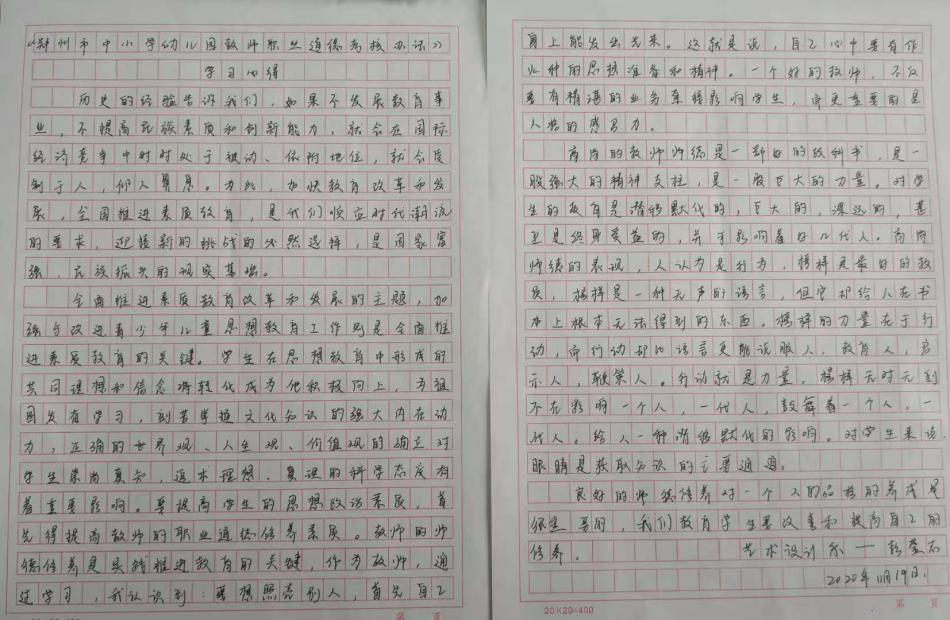 《郑州市中小学幼儿园教师职业道德考核办法》
学习心得
历史的经验告诉我们,如果不发展教育事
业,不提高民族素质和创新能力,就会在国际
经济竞争中时时处于被动、依附地位,就会受
制于人,仰人鼻息。为此,加快教育改革和发
展,全国推进素质教育,是我们顺应时代潮流
的要求,迎接新的挑战的必然选择,是国家富
强,民族振兴的现实基础。
全面推进素质教育改革和发展的主题,加
强与改进青少年儿童思想教育工作则是全面推
进素质教育的关键。学生在思想教育中形成的
共同理想和信念将转化成为他积极向上,为祖
国发有学习,刻苦掌握文化知识的强大内在动
力,正确的世界观、人生观、价值观的确立对
学生崇尚真知,追求理想、真理的科学态度有
着重要影响。要提高学生的思想政治素质,首
先得提高教师的职业道德修养素质。教师的师
德修养是实践推进教育的关键,作为教师,通
过学习,我认识到:要想照亮别人,首先自己
身上能发出光来。这就是说,自己心中要有作
火种的思想准备和精神。一个好的教师,不仅
要有精湛的业务直接影响学生,而更重要的是
人格的感召力。
高尚的教师师德是一部好的教科书,是一
股强大的精神支柱,是一股巨大的力量。对学
生的教育是潜移默代的,巨大的,深远的,甚
至是终身受益的,并于影响着好几代人。高尚
师德的表现,人认为是行为,榜样是最好的教
员,榜样是一种无声的语言,但它却给人在书
本上根本无法得到的东西。榜样的力量在于行
动,而行动却比语言更能说服人,教育人,启
示人,鞭策人。行动就是力量,榜样无时无刻
不在影响一个人,一代人,鼓舞着一个人,一
代人。给人一种潜移默代的影响。对学生来说,
眼睛是获取知识的主要通道。
良好的师德修养对一个人的品格的养成是
很重要的,我们教育学生要改善和提高自己的
修养。 艺术设计系——彭
2020年11月19日.
20×20=400
第 页
第 页